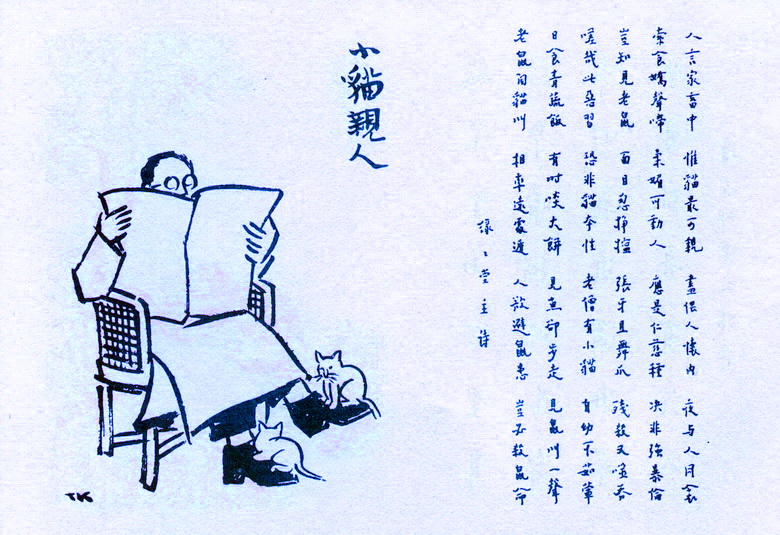 小貓親人
人言家畜中 惟貓最可親 晝偎人懷內 夜与人同衾
索食嬌聲啼 柔媚可動人 應是仁慈種 決非強暴倫
豈知見老鼠 面目忽猙獰 張牙且舞爪 殘殺又噬吞
嗟哉此惡習 恐非貓本性 老僧有小貓 自幼不茹葷
日食青蔬飯 有時啖大餅 見魚卻步走 見鼠叫一聲
老鼠聞貓叫 相率遠處遁 人欲避鼠患 豈必殺鼠命
緣〻堂主詩
TK